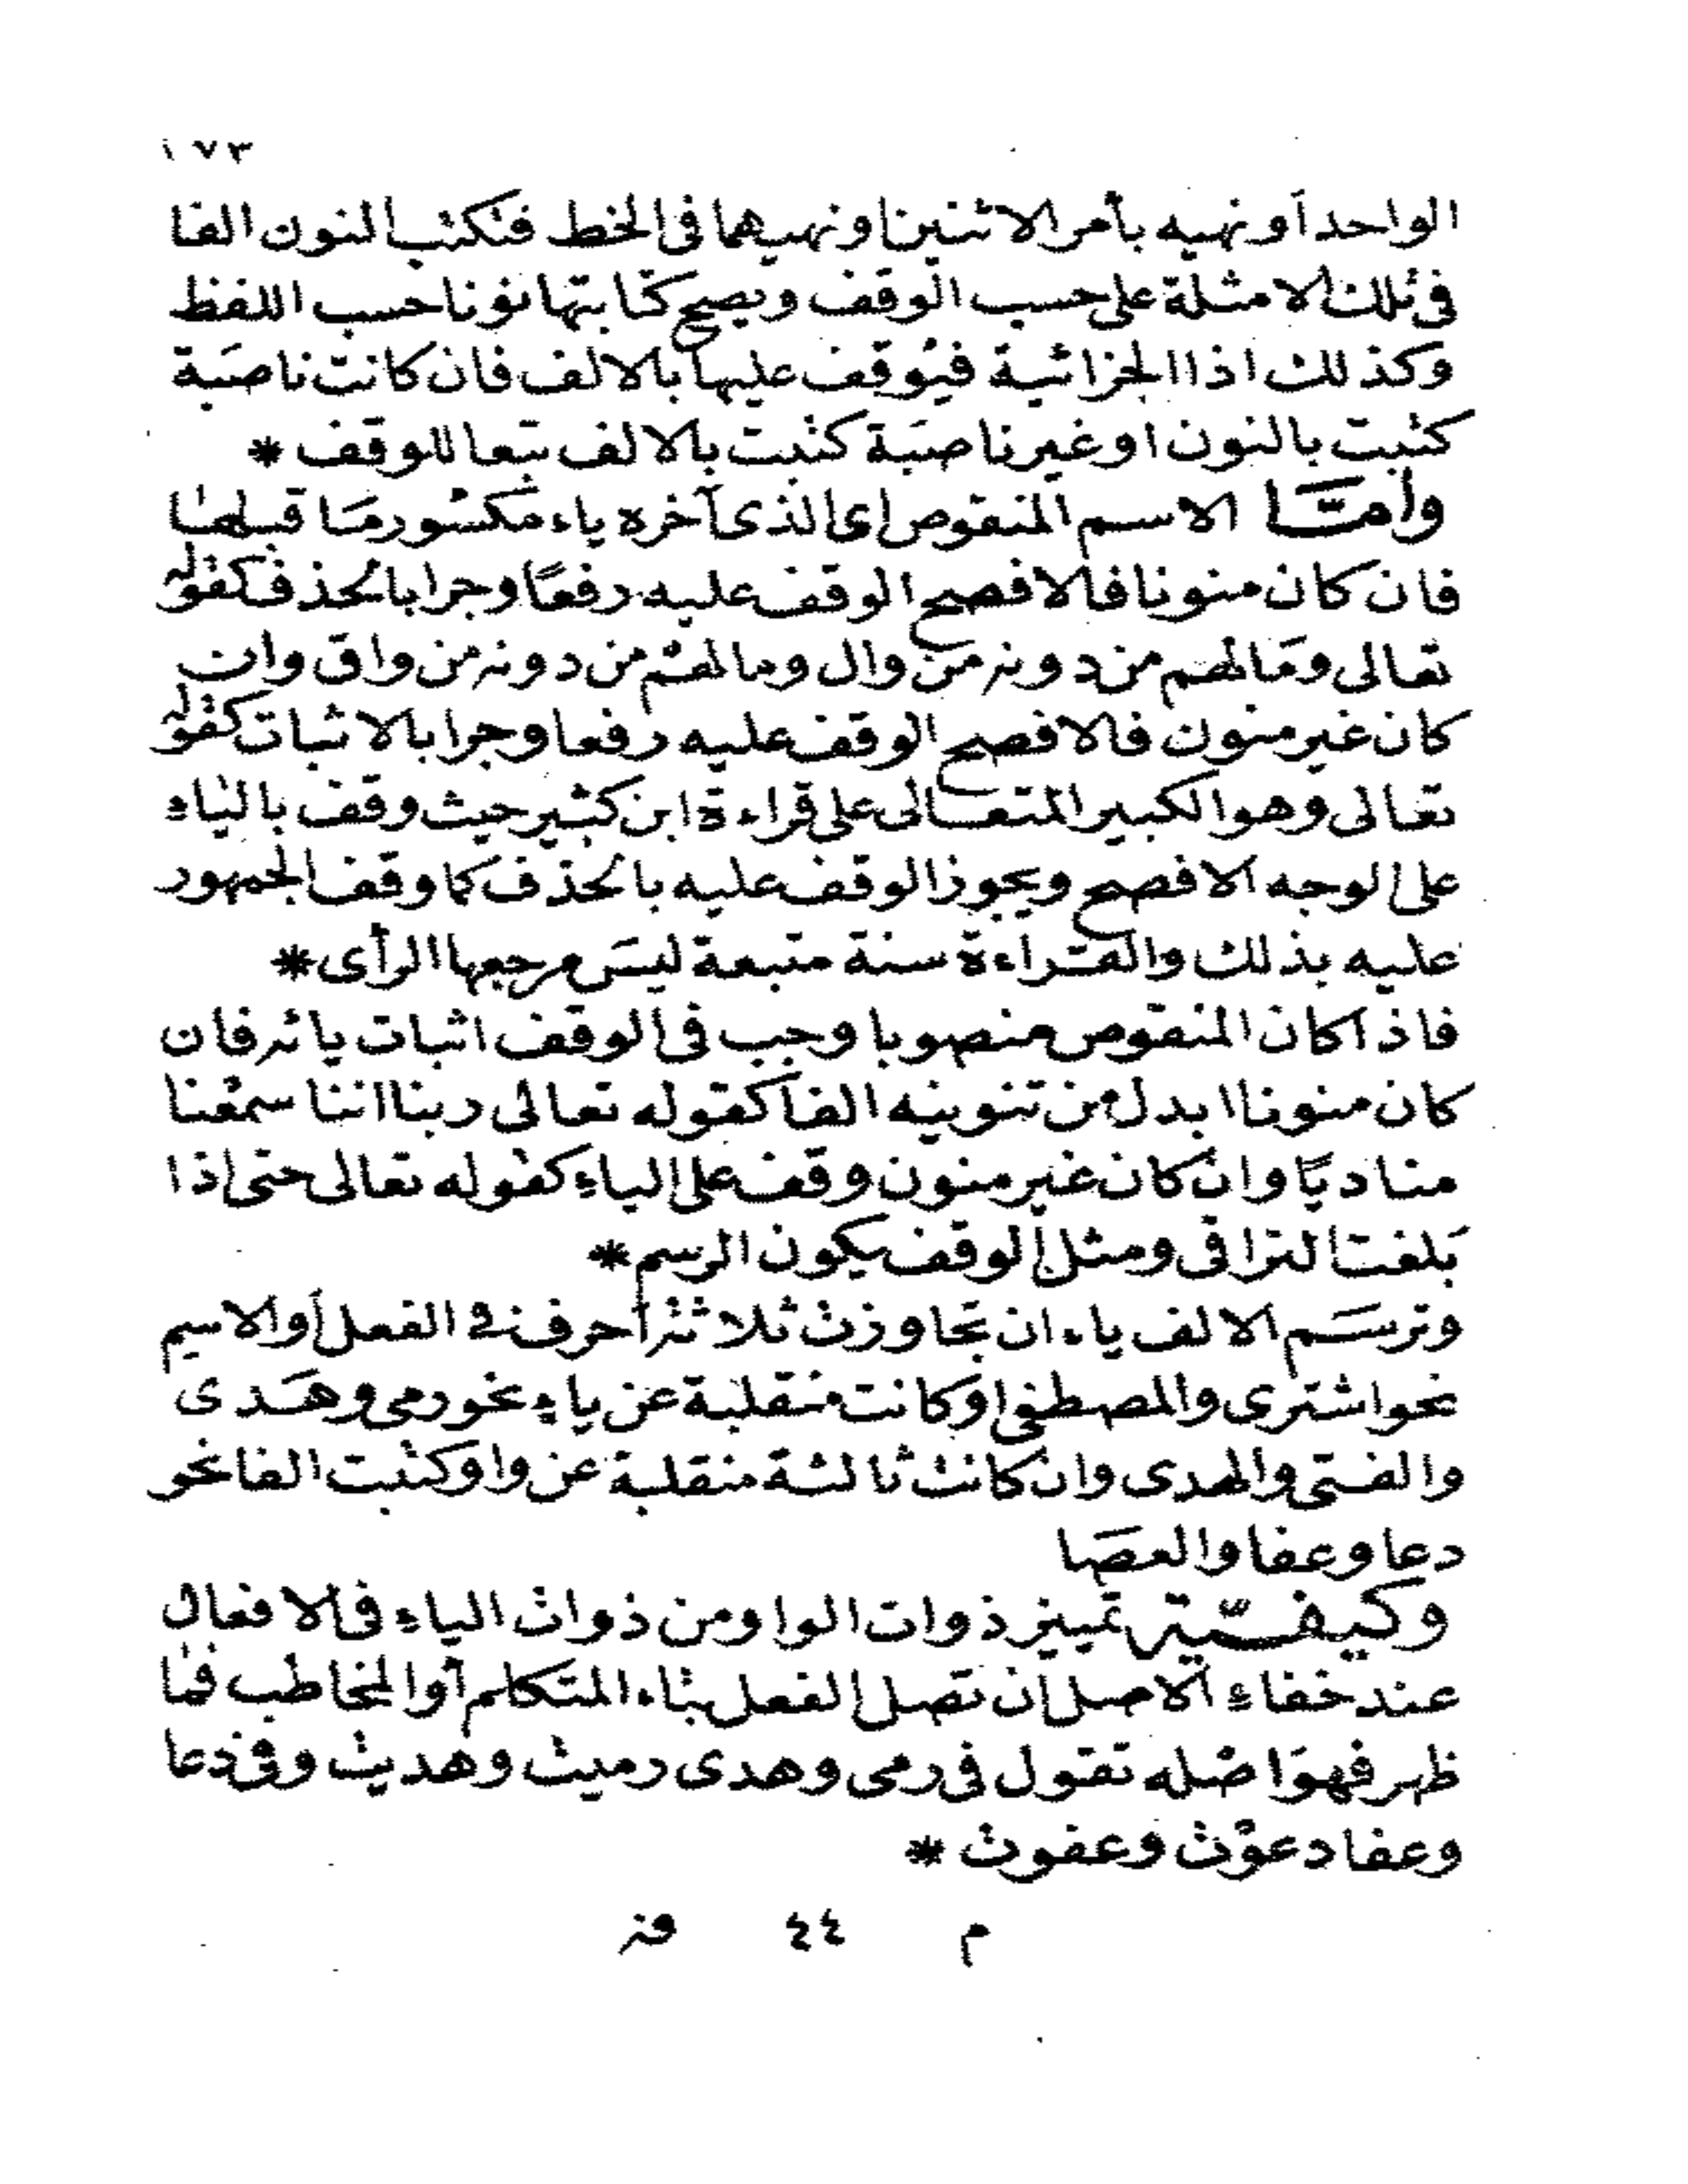 ١٧٣
الواحد أو نهيه بأمر الاثنين او نهيهما فى الخط فتكتب النون الفا
فى تلك الامثلة على حسب الوقف ويصح كتابتها نونا حسب اللفظ
وكذلك اذا الجزائية فيوقف عليها بالالف فان كانت ناصبة
كتبت بالنون او غير ناصبة كتبت بالالف تبعا للوقف *
وأمّا الاسم المنقوص اى الذى آخره ياء مكسور ما قبلها
فان كان منونا فالافصح الوقف عليه رفعًا وجرا بالحذف كقوله
تعالى وما لهم من دونه من وال وما لهم من دونه من واق وان
كان غير منون فالافصح الوقف عليه رفعا وجرا بالاثبات كقوله
تعالى وهو الكبير المتعالى على قراءة ابن كثير حيث وقف بالياء
على الوجه الافصح ويجوز الوقف عليه بالحذف كما وقف الجمهور
عليه بذلك والقراءة سنة متبعة ليس مرجعها الرأى *
فاذا كان المنقوص منصوبا وجب فى الوقف اثبات يائه فان
كان منونا ابدل من تنوينه الفا كقوله تعالى ربنا اننا سمعنا
مناديًا وان كان غير منون وقف على الياء كقوله تعالى حتى اذا
بلغت التراقى ومثل الوقف يكون الرسم *
وترسم الالف ياء ان تجاوزت ثلاثة أحرف فى الفعل أو الاسم
نحو اشترى والمصطفى او كانت منقلبة عن ياء نحو رمى وهدى
والفتى والهدى وان كانت ثالثة منقلبة عن واو كتبت الفا نحو
دعا وعفا والعصا
وكيفيّة تمييز ذوات الواو من ذوات الياء فى الافعال
عند خفاء الاصل ان تصل الفعل بتاء المتكلم أو المخاطب فما
ظهر فهو اصله تقول فى رمى وهدى رميت وهديت وفى دعا
وعفا دعوت وعفوت *
م ٤٤ فة